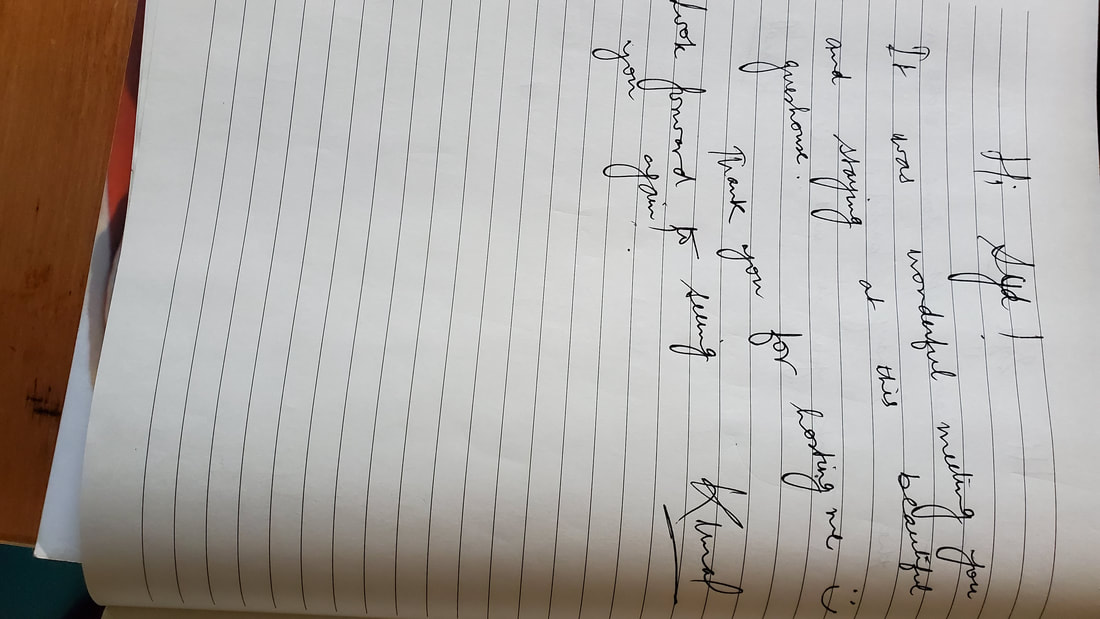 Hi, Syd!
It was wonderful meeting you
and staying at this beautiful
gueshouse.
Thank you for hosting me :)
look forward to seeing
you again!.
Kunal